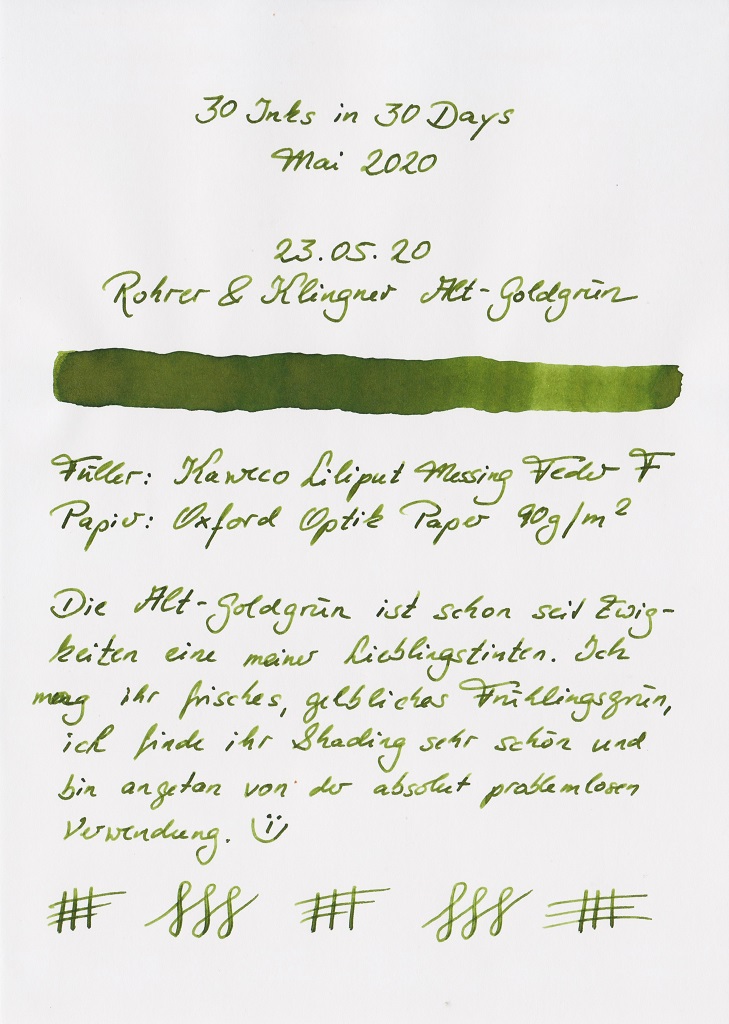 30 Inks in 30 Days
Mai 2020
23.05.20
Rohrer & Klingner Alt-Goldgrün
Füller: Kaweco Liliput Messing Feder F
Papier: Oxford Optik Paper 90g/m²
Die Alt-Goldgrün ist schon seit Ewig-
keiten eine meiner Lieblingstinten. Ich
mag ihr frisches, gelbliches Frühlingsgrün,
ich finde ihr Shading sehr schön und
bin angetan von der absolut problemlosen
Verwendung. Ü